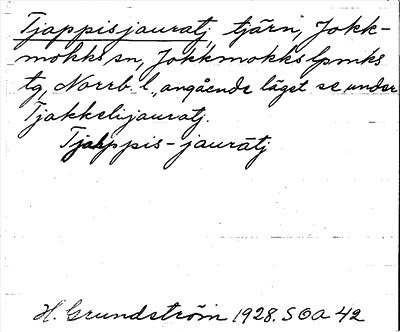 Tjappisjauratj, tjärn, Jokk-
mokks sn, Jokkmokks lpmks
tg, Norrb. l., angående läget se under
Tjakkelijauratj.
Tjahppis-jaurātj
H. Grundström 1928. SOA 42